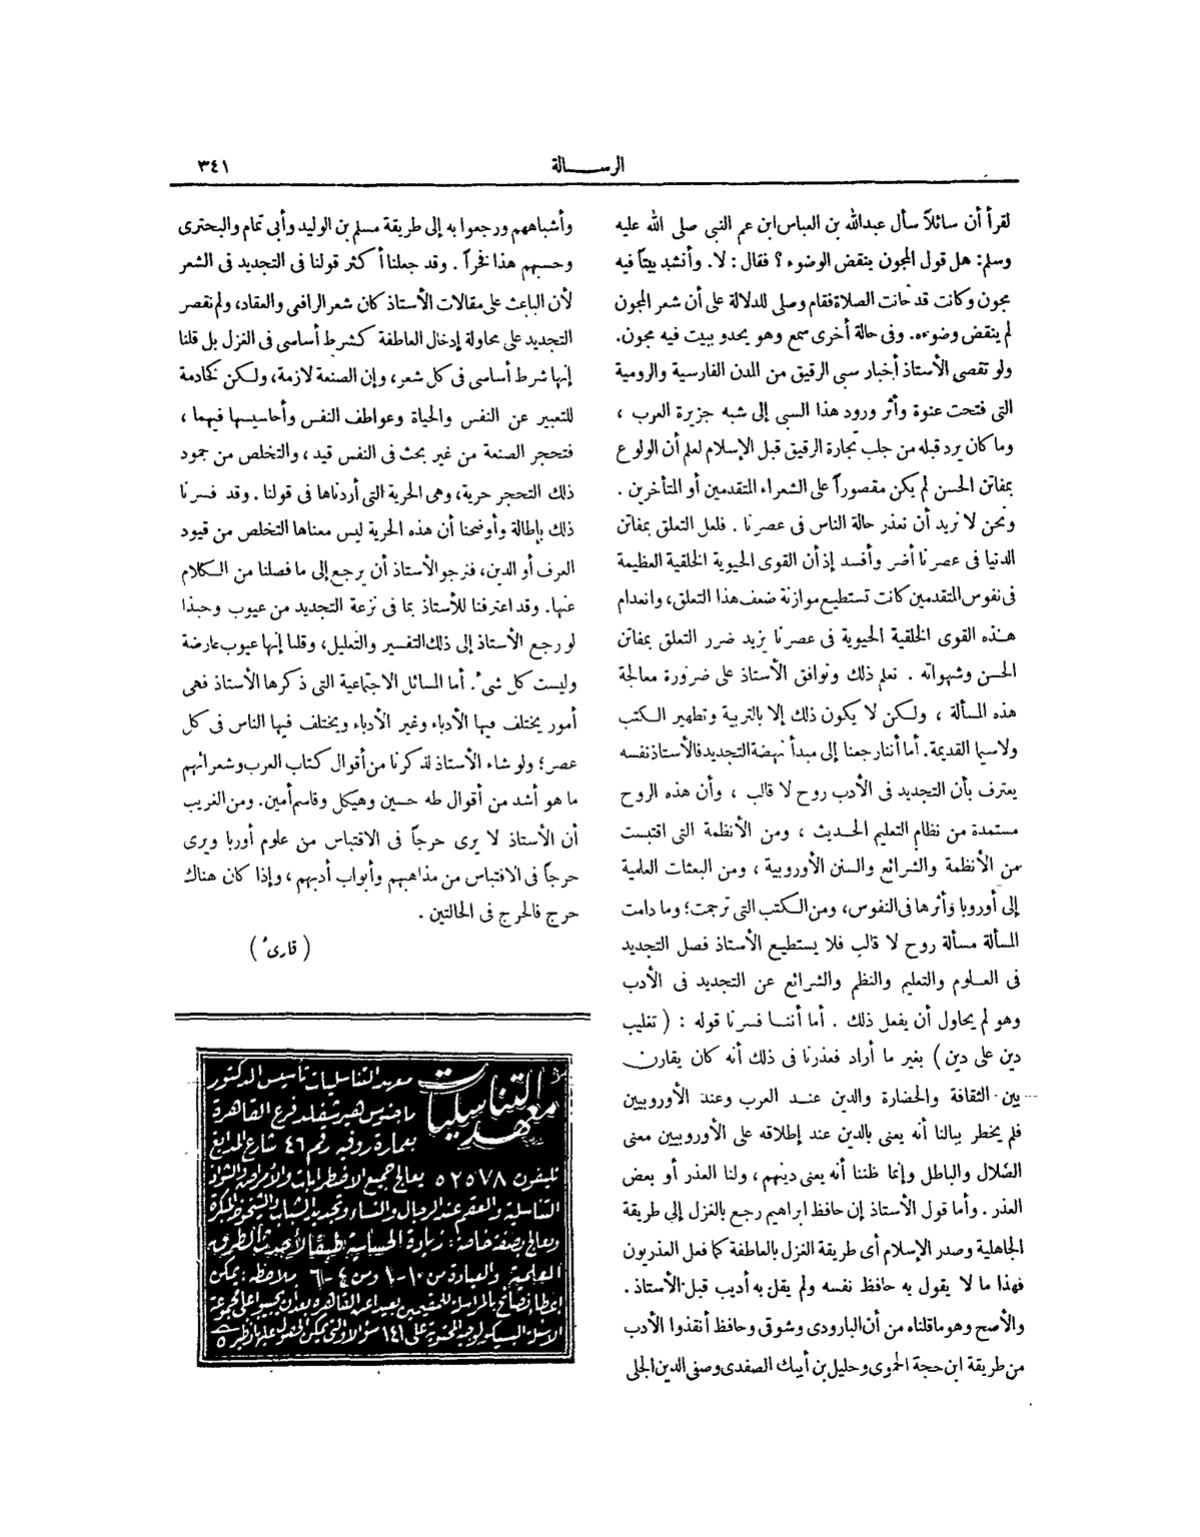 الرســـالة
٣٤١
لقرأ أن سائلاً سأل عبدالله بن العباس ابن عم النبى صلى الله عليه
وسلم: هل قول المجون ينقض الوضوء ؟ فقال : لا. وأنشد بيتاً فيه
مجون وكانت قد حانت الصلاة فقام وصلى للدلالة على أن شعر المجون
لم ينقض وضوءه. وفى حالة أخرى سمع وهو يحدو ببيت فيه مجون.
ولو تقصى الأستاذ أخبار سبى الرقيق من المدن الفارسية والرومية
التى فتحت عنوة وأثر ورود هذا السبى إلى شبه جزيرة العرب ،
وما كان يرد قبله من جلب تجارة الرقيق قبل الإسلام لعلم أن الولوع
بمفاتن الحسن لم يكن مقصوراً على الشعراء المتقدمين أو المتأخرين .
ونحن لا نريد أن نعذر حالة الناس فى عصرنا . فلعل التعلق بمفاتن
الدنيا فى عصرنا أضر وأفسد إذ أن القوى الحيوية الخلقية العظيمة
فى نفوس المتقدمين كانت تستطيع موازنة ضعف هذا التعلق، وانعدام
هـذه القوى الخلقية الحيوية فى عصرنا يزيد ضرر التعلق بمفاتن
الحسن وشهواته . نعلم ذلك ونوافق الأستاذ على ضرورة معالجة
هذه المسألة ، ولـكن لا يكون ذلك إلا بالتربية وتطهير الـكتب
ولاسيما القديمة. أما أننا رجعنا إلى مبدأ نهضة التجديد فالأستاذ نفسه
يعترف بأن التجديد فى الأدب روح لا قالب ، وأن هذه الروح
مستمدة من نظام التعليم الحـديث ، ومن الأنظمة التى اقتبست
من الأنظمة والشرائع والسنن الأوروبية ، ومن البعثات العلمية
إلى أوروبا وأثرها فى النفوس، ومن الـكتب التى ترجمت؛ وما دامت
المسألة مسألة روح لا قالب فلا يستطيع الأستاذ فصل التجديد
فى العـلوم والتعليم والنظم والشرائع عن التجديد فى الأدب
وهو لم يحاول أن يفعل ذلك . أما أننـا فسرنا قوله : ( تغليب
دين على دين ) بغير ما أراد فعذرنا فى ذلك أنه كان يقارن
بين الثقافة والحضارة والدين عنـد العرب وعند الأوروبيين
فلم يخطر ببالنا أنه يعنى بالدين عند إطلاقه على الأوروبيين معنى
الضلال والباطل وإنما ظننا أنه يعنى دينهم ، ولنا العذر أو بعض
العذر . وأما قول الأستاذ إن حافظ ابراهيم رجع بالغزل إلى طريقة
الجاهلية وصدر الإسلام أى طريقة الغزل بالعاطفة كما فعل العذريون
فهذا ما لا يقول به حافظ نفسه ولم يقل به أديب قبل الأستاذ .
والأصح وهو ما قلناه من أن البارودى وشوقى وحافظ أنقذوا الأدب
من طريقة ابن حجة الحموى وخليل بن أيبك الصفدى وصفى الدين الحلى
وأشباههم ورجعوا به إلى طريقة مسلم بن الوليد وأبى تمام والبحترى
وحسبهم هذا فخراً . وقد جعلنا أكثر قولنا فى التجديد فى الشعر
لأن الباعث على مقالات الأستاذ كان شعر الرافعى والعقاد، ولم نقصر
التجديد على محاولة إدخال العاطفة كشرط أساسى فى الغزل بل قلنا
إنها شرط أساسى فى كل شعر، وإن الصنعة لازمة، ولـكن كخادمة
للتعبير عن النفس والحياة وعواطف النفس وأحاسيسها فيهما ،
فتحجر الصنعة من غير بحث فى النفس قيد ، والتخلص من جمود
ذلك التحجر حرية، وهى الحرية التى أردناها فى قولنا . وقد فسرنا
ذلك بإطالة وأوضحنا أن هذه الحرية ليس معناها التخلص من قيود
العرف أو الدين، فنرجو الأستاذ أن يرجع إلى ما فصلنا من الـكلام
عنها. وقد اعترفنا للأستاذ بما فى نزعة التجديد من عيوب وحبذا
لو رجع الأستاذ إلى ذلك التفسير والتعليل، وقلنا إنها عيوب عارضة
وليست كل شىء. أما المسائل الاجتماعية التى ذكرها الأستاذ فهى
أمور يختلف فيها الأدباء وغير الأدباء ويختلف فيها الناس فى كل
عصر؛ ولو شاء الأستاذ لذكرنا من أقوال كتاب العرب وشعرائهم
ما هو أشد من أقوال طه حسين وهيكل وقاسم أمين. ومن الغريب
أن الأستاذ لا يرى حرجاً فى الاقتباس من علوم أوربا ويرى
حرجاً فى الاقتباس من مذاهبهم وأبواب أدبهم ، وإذا كان هناك
حرج فالحرج فى الحالتين .
( قارىء )
معهد التناسليات
معهد التناسليات تأسيس الدكتور
ماجنوس هيرشفلد فرع القاهرة
بعمارة روفيه رقم ٤٦ شارع المدابغ
تليفون ٥٢٥٧٨ يعالج جميع الاضطرابات والأمراض والشواذ
التناسلية والعقم عند الرجال والنساء وتجديد الشباب والشيخوخة المبكرة
ويعالج بصفة خاصة: سرعة القذف طبقا لأحدث الطرق
العلمية والعيادة من ١٠-١ ومن ٤-٦ ملاحظة: يمكن
إعطاء نصائح بالمراسلة للمقيمين بعيدا عن القاهرة بعد أن يجيبوا على مجموعة
الأسئلة البسيكولوجية المحتوية على ١٤١ سؤالا والتى يمكن الحصول عليها نظير ٥